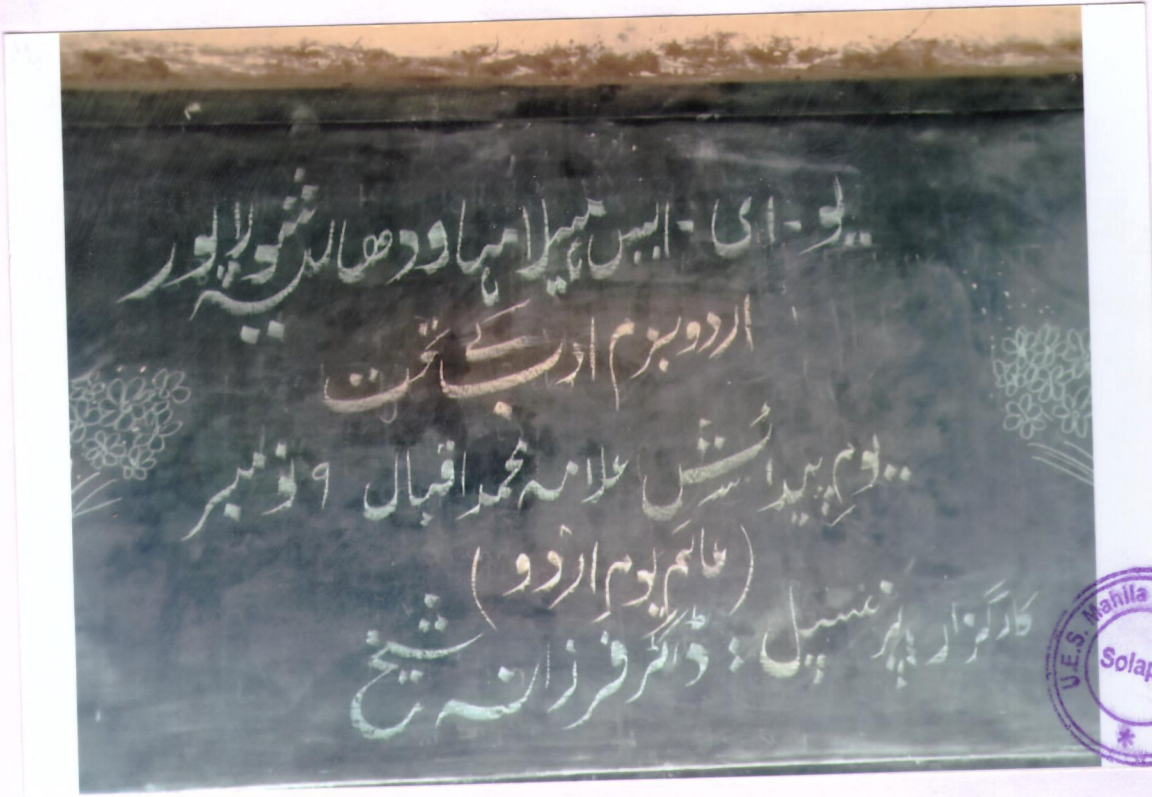 یو۔ای۔ایس مہیلا مہاودھیالیہ شولاپور
اردو بزم ادب کے تحت
یومِ پیدائش علامہ محمد اقبال ۹ نومبر
(عالمی یومِ اردو)
کارگزار پرنسپل : ڈاکٹر فرزانہ شیخ
U.E.S. Mahila
Solap